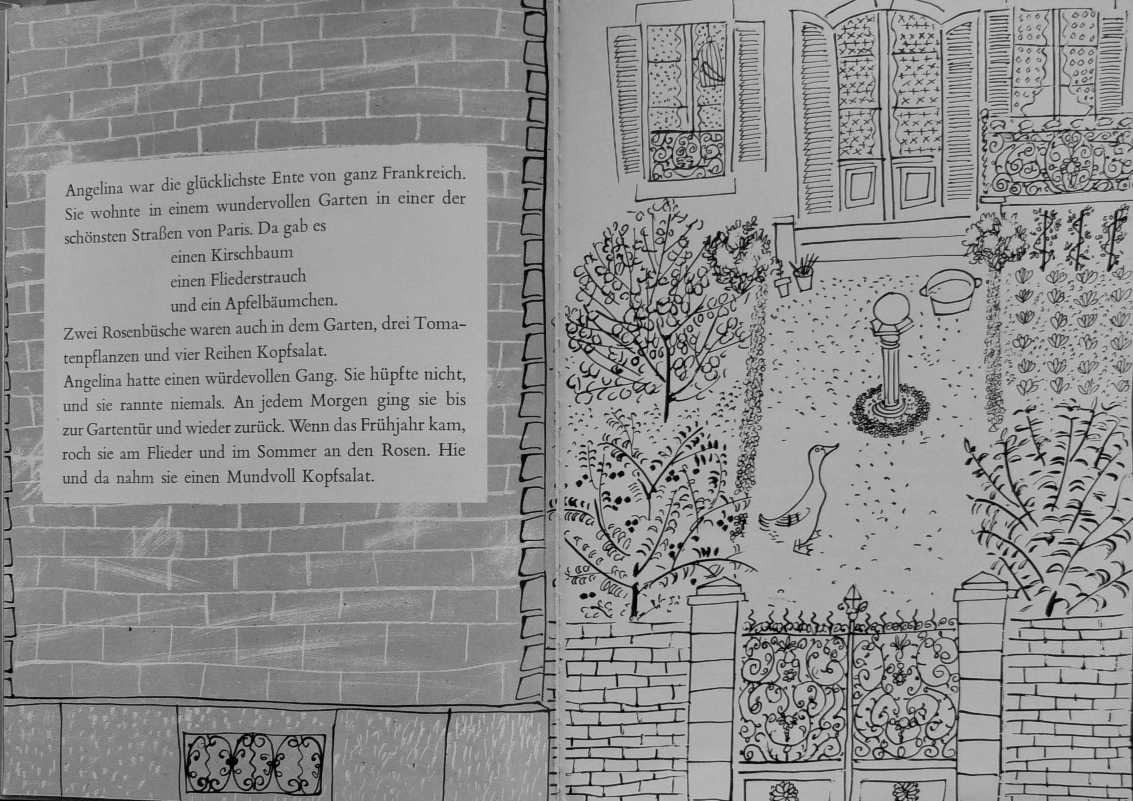 Angelina war die glücklichste Ente von ganz Frankreich.
Sie wohnte in einem wundervollen Garten in einer der
schönsten Straßen von Paris. Da gab es
einen Kirschbaum
einen Fliederstrauch
und ein Apfelbäumchen.
Zwei Rosenbüsche waren auch in dem Garten, drei Toma-
tenpflanzen und vier Reihen Kopfsalat.
Angelina hatte einen würdevollen Gang. Sie hüpfte nicht,
und sie rannte niemals. An jedem Morgen ging sie bis
zur Gartentür und wieder zurück. Wenn das Frühjahr kam,
roch sie am Flieder und im Sommer an den Rosen. Hie
und da nahm sie einen Mundvoll Kopfsalat.